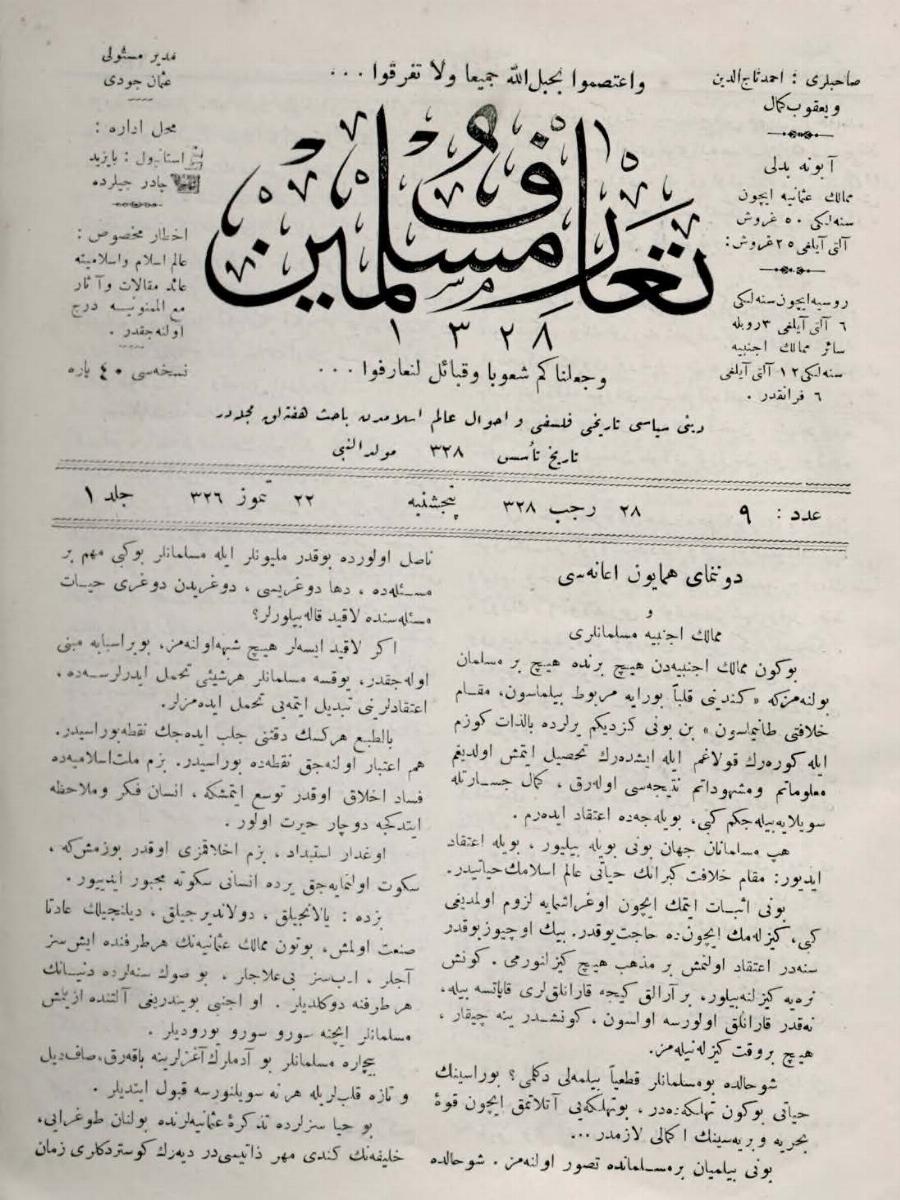 صاحبلری : احمد تاج الدین
و یعقوب کمال
آبونه بدلی
ممالك عثمانیه ایچون
سنه‌لكی ٥٠ غروش
آلتی آیلغی ٢٥ غروش :
روسیه ایچون سنه‌لكی
٦ آلتی آیلغی ٣ روبله
سائر ممالك اجنبیه
سنه‌لكی ١٢ آلتی آیلغی
٦ فرانقدر .
واعتصموا بحبل الله جمیعا ولا تفرقوا ...
تعارف مسلمین
١٣٢٨
وجعلناكم شعوبا وقبائل لتعارفوا ...
مدیر مسئولی
عثمان جودی
محل اداره :
استانبول : بایزید
چادر جیلرده
اخطار مخصوص :
عالم اسلام واسلامیته
عائد مقالات و آثار
مع الممنونیه درج
اولنه‌جقدر .
نسخه‌سی ٤٠ پاره
دینی سیاسی تاریخی فلسفی و احوال عالم اسلامدن باحث هفته‌لق مجله‌در
تاریخ تأسس ٣٢٨ مولد النبی
عدد : ٩ ٢٨ رجب ٣٢٨ پنجشنبه ٢٢ تموز ٣٢٦ جلد ١
دوننمای همایون اعانه‌سی
و
ممالك اجنبیه مسلمانلری
بوكون ممالك اجنبیه‌دن هیچ برنده هیچ بر مسلمان
بولنه‌مزكه « كندینی قلباً بورایه مربوط بیلماسون، مقام
خلافتی طانیماسون » بن بونی كزدیكم یرلرده بالذات كوزم
ایله كوره‌رك قولاغم ایله ایشیده‌رك تحصیل ایتمش اولدیغم
معلوماتم ومشهوداتم نتیجه‌سی اوله‌رق ، كمال جسارتله
سویلایه‌بیله‌جكم كبی، بویله‌جه‌ده اعتقاد ایده‌رم .
هپ مسلمانان جهان بونی بویله بیلیور ، بویله اعتقاد
ایدیور: مقام خلافت كبرانك حیاتی عالم اسلامك حیاتیدر.
بونی اثبات ایتمك ایچون اوغراشمایه لزوم اولدیغی
كبی، كیزله‌مك ایچون‌ده حاجت یوقدر. بیك اوچیوز بوقدر
سنه‌در اعتقاد اولنمش بر مذهب هیچ كیزلنورمی . كونش
نره‌یه كیزلنه‌بیلور، بر آرالق كیجه قارانلق‌لری قاپاتسه بیله،
نه‌قدر قارانلق اولورسه اولسون، كونشدر ینه چیقار ،
هیچ بروقت كیزله‌نیله‌مز.
شو حالده بو مسلمانلر قطعیاً بیلمه‌لی دكلمی؟ بوراسینك
حیاتی بوكون تهلكه‌ده‌در ، بو تهلكه‌یی آتلاتمق ایچون قوۀ
بحریه و بریه‌سینك اكمالی لازمدر ...
بونی بیلمیان بر مسلمانده تصور اولنه‌مز . شو حالده
ناصل اولورده بوقدر ملیونلر ایله مسلمانلر بوكبی مهم بر
مسئله‌ده ، دها دوغریسی ، دوغریدن دوغری حیات
مسئله‌سنده لاقید قاله‌بیلورلر؟
اكر لاقید ایسه‌لر هیچ شبهه اولنه‌مز، بو براسبابه مبنی
اوله‌جقدر، یوقسه مسلمانلر هرشیئی تحمل ایدرلرسه‌ده ،
اعتقادلرینی تبدیل ایتمه‌یی تحمل ایده‌مزلر.
بالطبع هركسك دقتنی جلب ایده‌جك نقطه بوراسیدر.
هم اعتبار اولنه‌جق نقطه‌ده بوراسیدر. بزم ملت اسلامیه‌ده
فساد اخلاق اوقدر توسع ایتمشكه ، انسان فكر وملاحظه
ایتدكجه دوچار حیرت اولور .
اوغدار استبداد ، بزم اخلاقمزی اوقدر بوزمش‌كه ،
سكوت اولنمایه‌جق یرده انسانی سكوته مجبور ایدییور .
بزده : یالانجیلق ، دولاندیرجیلق ، دیلنجیلك عادتا
صنعت اولمش، بوتون ممالك عثمانیه‌نك هرطرفنده ایش‌سز
آجلر ، ادب‌سز بی‌علاجلر ، بو صوك سنه‌لرده دنیانك
هر طرفنه دوكلدیلر . او اجنبی بویندریغی آلتنده ازیلمش
مسلمانلر ایچنه سورو سورو یورودیلر .
بیچاره مسلمانلر بو آدملرك آغزلرینه باقه‌رق، صاف‌دیل
و تازه قلب‌لریله هر نه سویلنورسه قبول ایتدیلر .
بو حیا سزلرده تذكرۀ عثمانیه‌لرنده بولنان طوغرایی،
خلیفه‌نك كندی مهر ذاتیسی‌در دیه‌رك كوستردكلری زمان